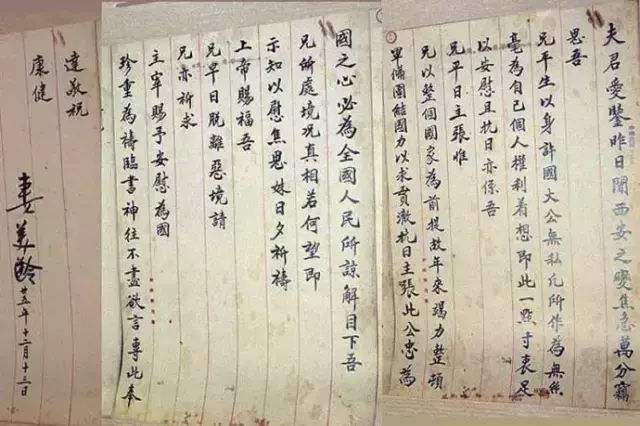 夫君愛鑒昨日聞西安之變焦急萬分竊
思吾
兄平生以身許國大公無私凡所作為無絲
毫為自己個人權利着想即此一點寸衷足
以安慰且抗日亦係吾
兄平日主張惟
兄以整個國家為前提故年來竭力整頓
軍備團結國力以求貫澈抗日主張此公忠為
國之心必為全國人民所諒解目下吾
兄所處境况真相若何望即
示知以慰焦思妹日夕祈禱
上帝賜福吾
兄早日脫離惡境請
兄亦祈求
主宰賜予安慰為國
珍重為禱臨書神往不盡欲言專此奉
達敬祝
康健
妻美齡
廿五年十二月十三日